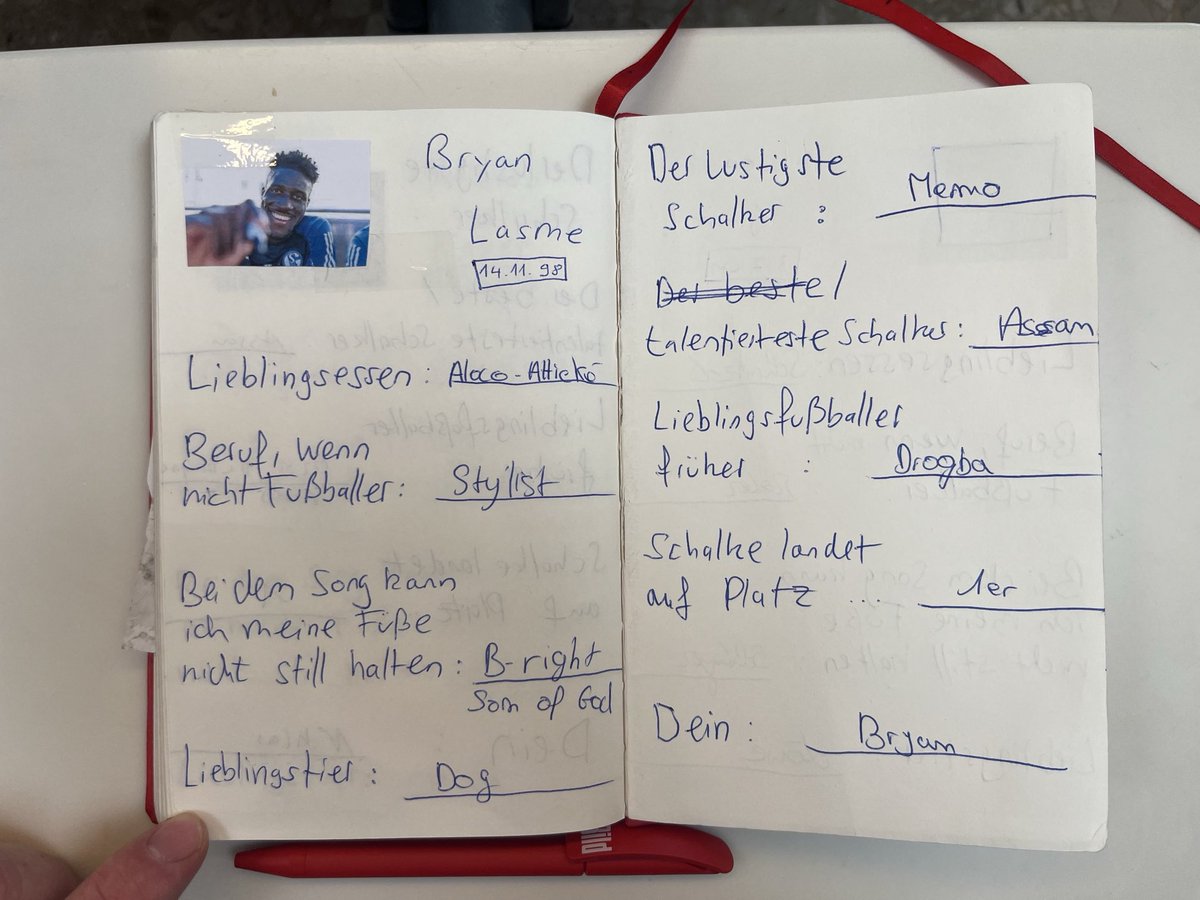 Bryan
Lasme
14.11.98
Lieblingsessen: Aloco-Attieké
Beruf, wenn
nicht Fußballer: Stylist
Bei dem Song kann
ich meine Füße
nicht still halten: B-right
Son of God
Lieblingstier: Dog
Der lustigste
Schalker: Memo
Der beste/
talentierteste Schalker: Assan
Lieblingsfußballer
früher: Drogba
Schalke landet
auf Platz ... 1er
Dein: Bryan
Bild